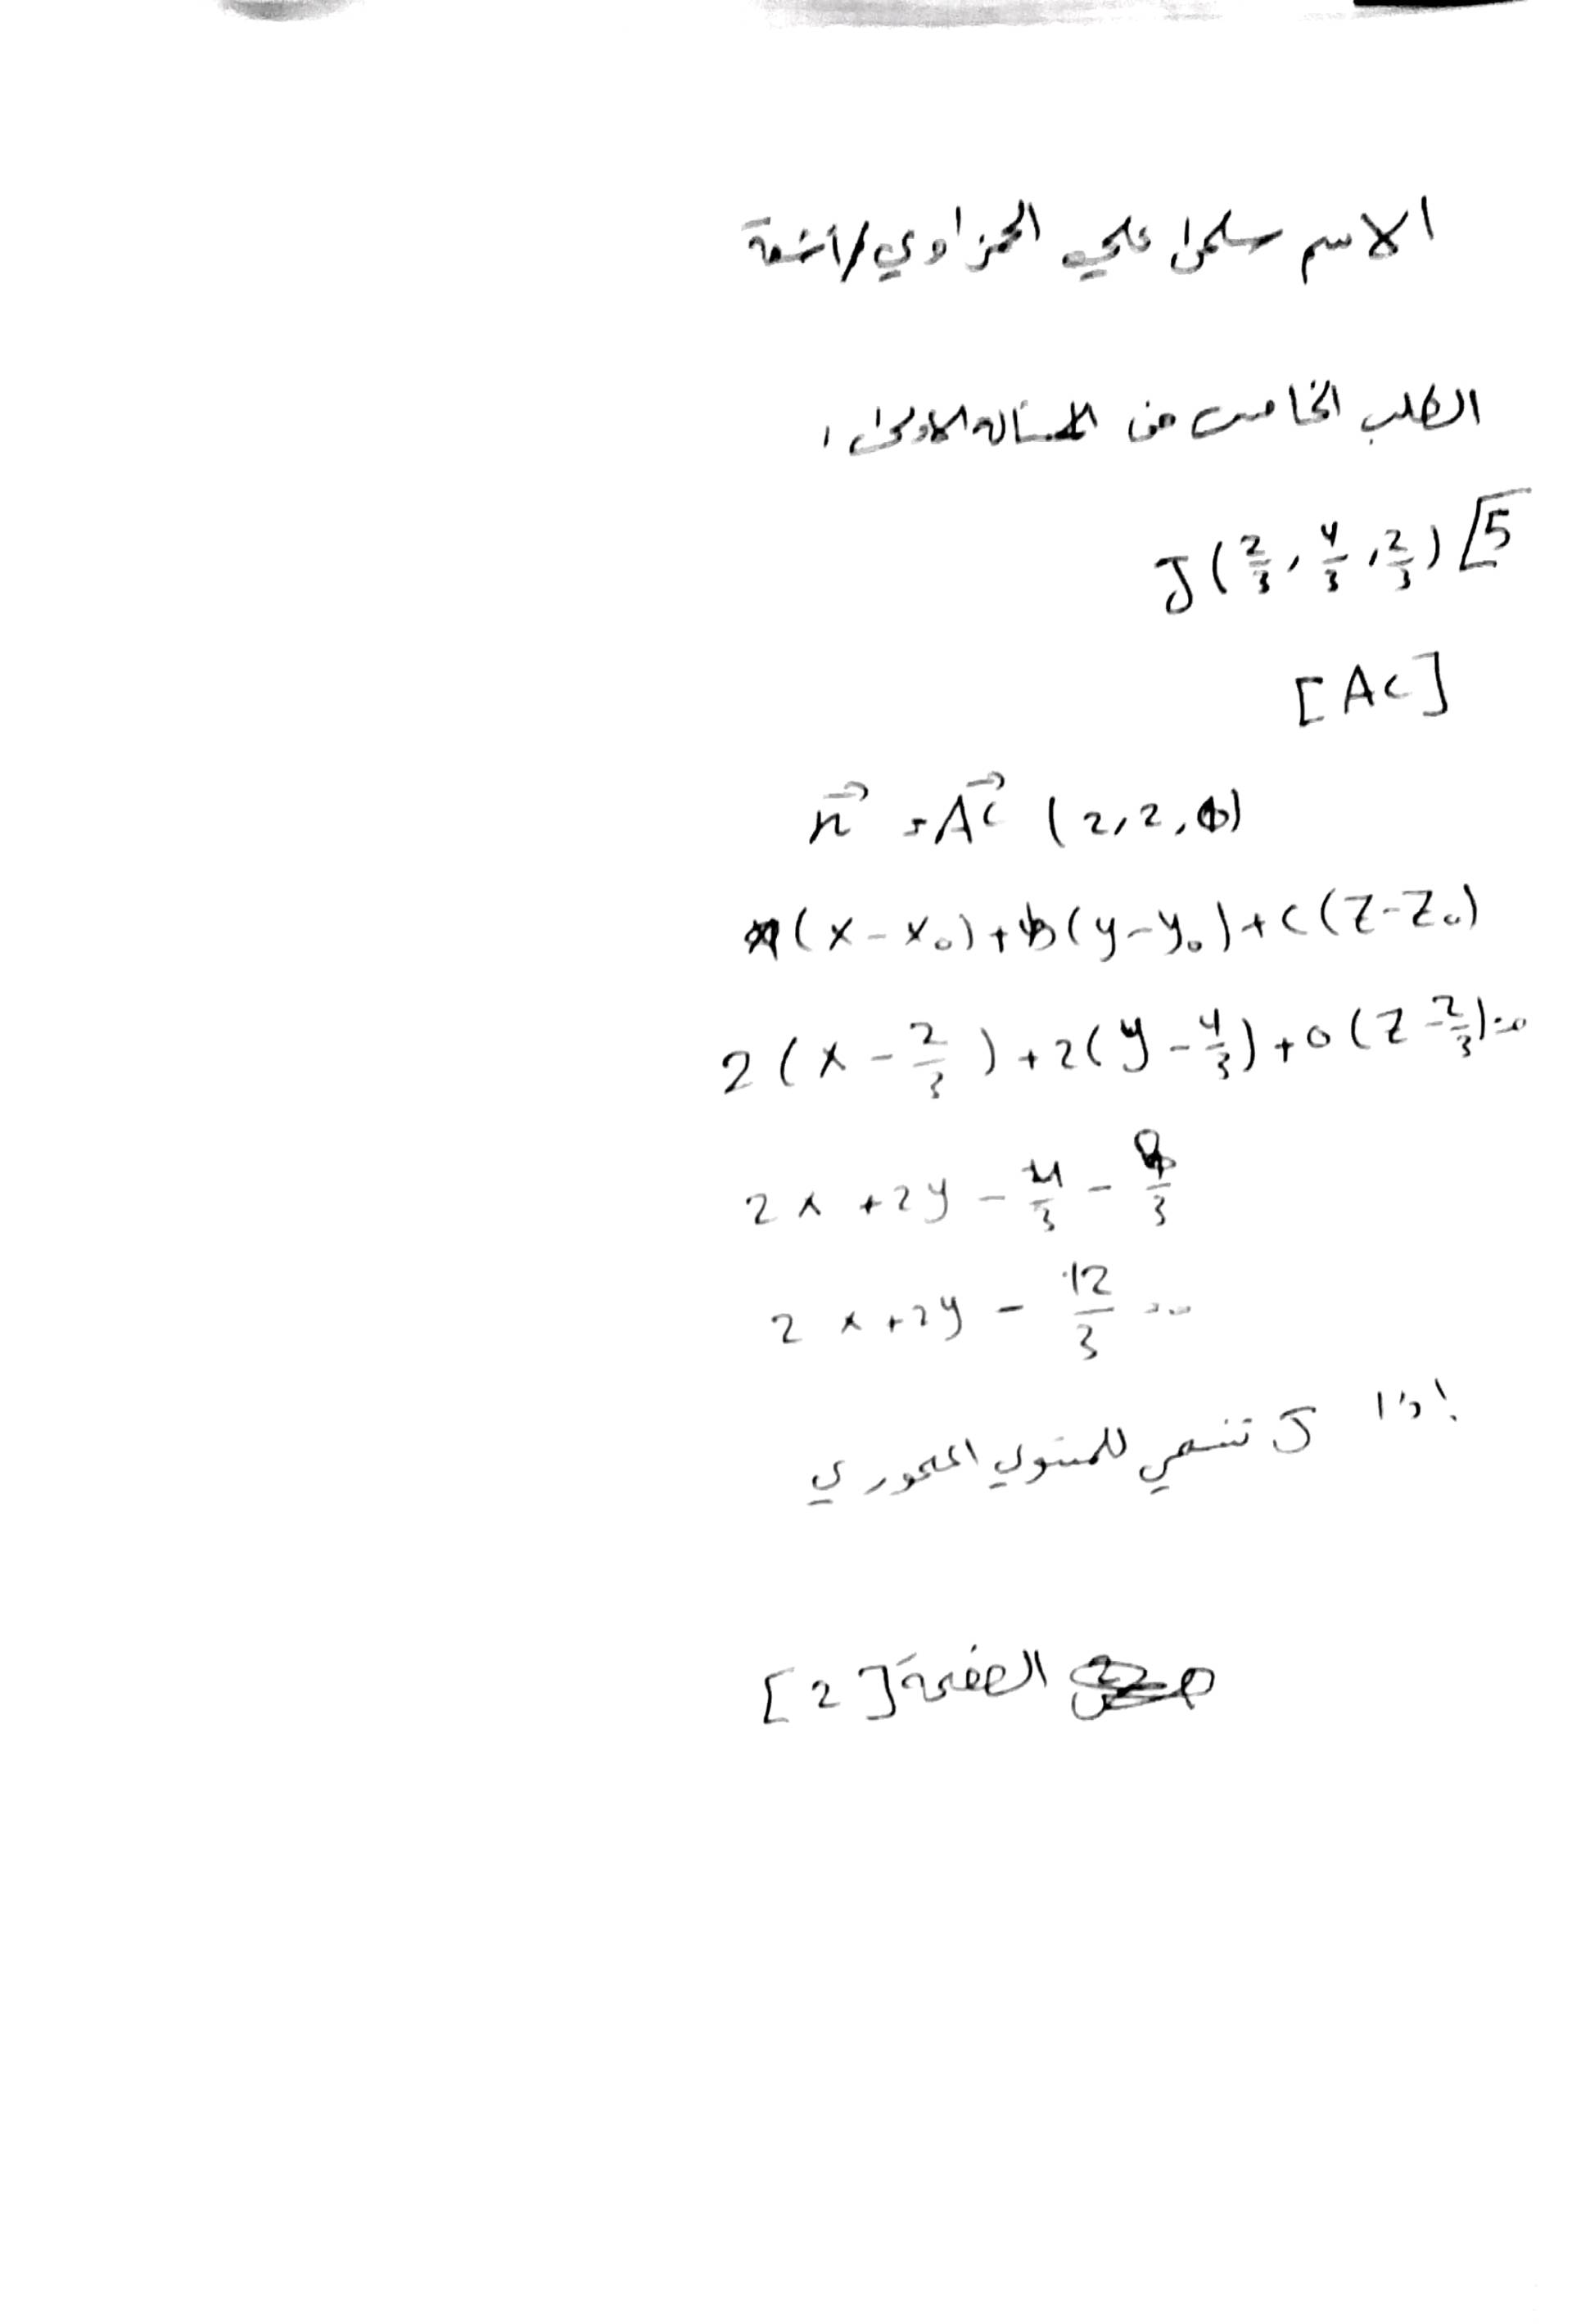 الاسم سلمى علي الحمزاوي /
الطلب الخامس من المسألة الاولى:
5 J(2/3, 4/3, 2/3)
[AC]
n⃗ = AC⃗ (2,2,0)
a(x-x₀)+b(y-y₀)+c(z-z₀)
2(x - 2/3)+2(y - 4/3)+0(z - 2/3)=0
2x+2y - 4/3 - 8/3
2x+2y - 12/3 =0
إذا J تنتمي للمستوي المحوري
الصفحة [2]